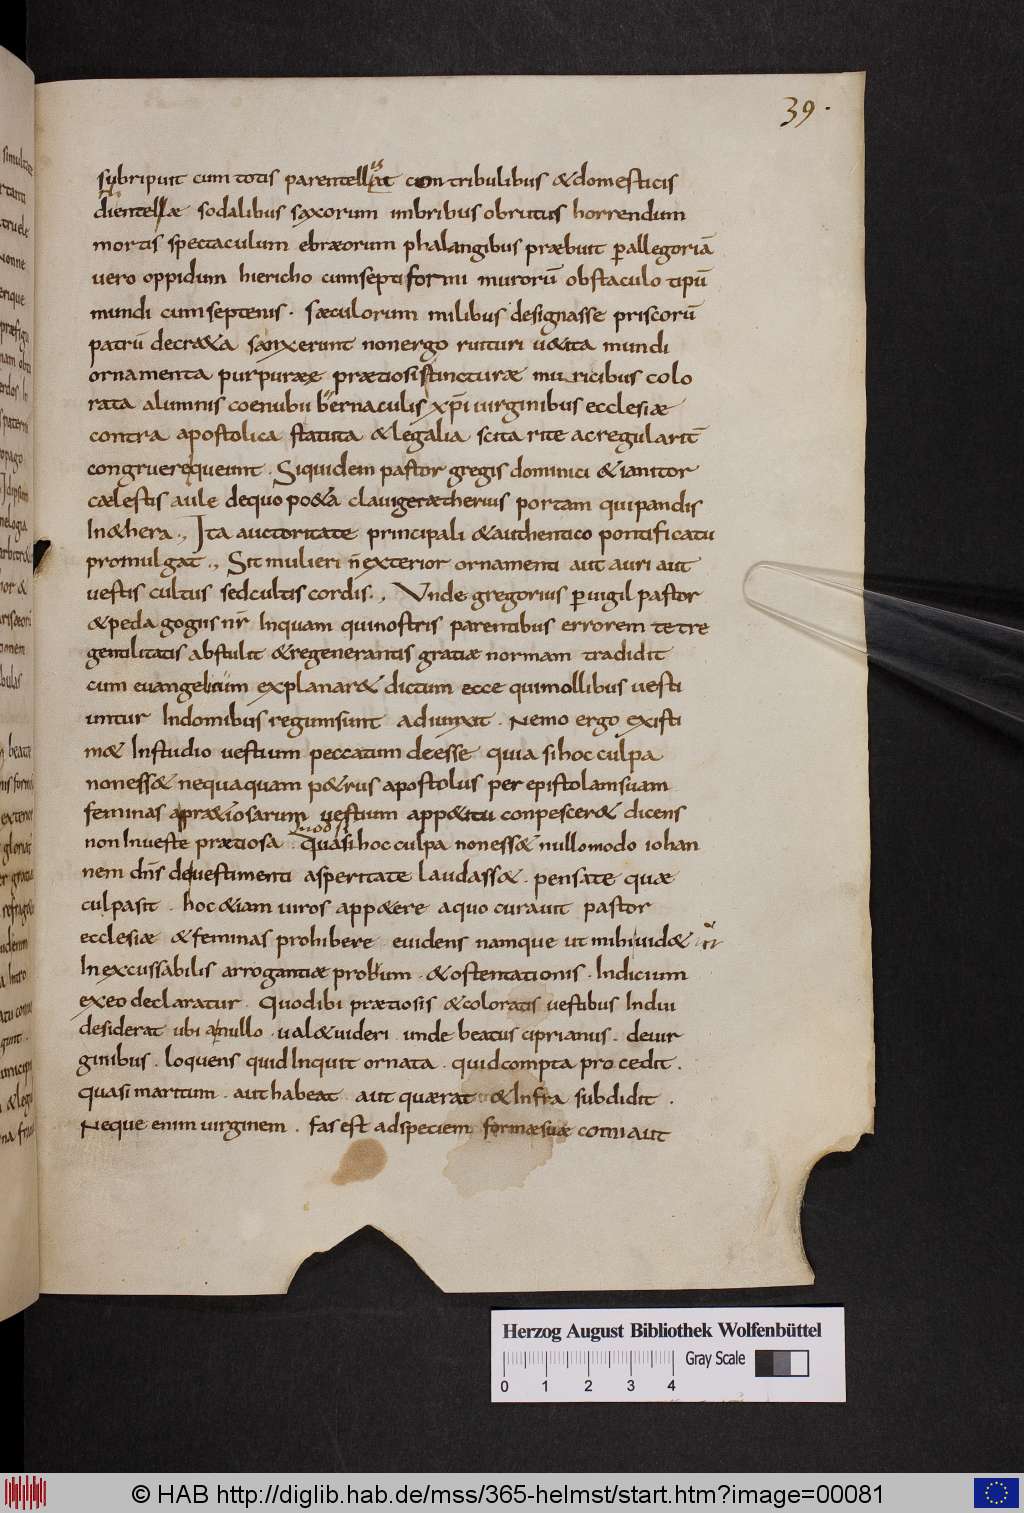 39.
subripuit cum totis parentellis at contribulibus & domesticis
clientelæ sodalibus saxorum imbribus obrutus horrendum
mortis spectaculum ebræorum phalangibus præbuit p allegoriā
vero oppidum hiericho cum septiformi murorū obstaculo tipū
mundi cum septenis . sæculorum milibus designasse priscorū
patrū decr&a sanxerunt non ergo ruituri u&ita mundi
ornamenta purpuræ prætiosis tincturæ muricibus colo
rata alumnis coenubii bernaculis xp̄i uirginibus ecclesiæ
contra apostolica statuta & legalia scita rite ac regularit̄
congruere queunt . Siquidem pastor gregis dominici & ianitor
cælestis aule de quo po&a clauiger ætherius portam qui pandis
In &hera ., Ita auctoritate principali & authentico pontificatu
promulgat ., Sit mulieri n̄ exterior ornamenti aut auri aut
uestis cultus sed cultis cordis ., Unde gregorius p uigil pastor
& pedagogus nr̄ Inquam qui nostris parentibus errorem tetre
gentilitatis abstulit & regenerantis gratiæ normam tradidit
cum euangelicum explanar& dictum ecce qui mollibus uesti
untur In domibus regum sunt adiunxit . Nemo ergo existi
m& In studio uestium peccatum deesse quia si hoc culpa
non ess& nequaquam p&rus apostolus per epistolam suam
feminas a præ&iosarum uestium app&itu conpescer& dicens
non In ueste prætiosa . quod
quasi hoc culpa non ess& nullomodo iohan
nem dn̄s de uestimenti asperitate laudass& . pensate quæ
culpa sit . hoc &iam uiros app&ere a quo curauit pastor
ecclesiæ & feminas prohibere euidens namque ut mihi uid&ur
In excussabilis arrogantiæ probrum . & ostentationis . Indicium
ex eo declaratur . Quod ibi prætiosis & coloratis uestibus Indui
desiderat ubi a nullo . ual& uideri . unde beatus ciprianus . de uir
ginibus . loquens quid Inquit ornata . quid compta procedit .
quasi maritum . aut habeat aut quærat & Infra subdidit .
Neque enim uirginem . fas est ad speciem formæ suæ comi aut
Herzog August Bibliothek Wolfenbüttel
Gray Scale
0 1 2 3 4
© HAB http://diglib.hab.de/mss/365-helmst/start.htm?image=00081